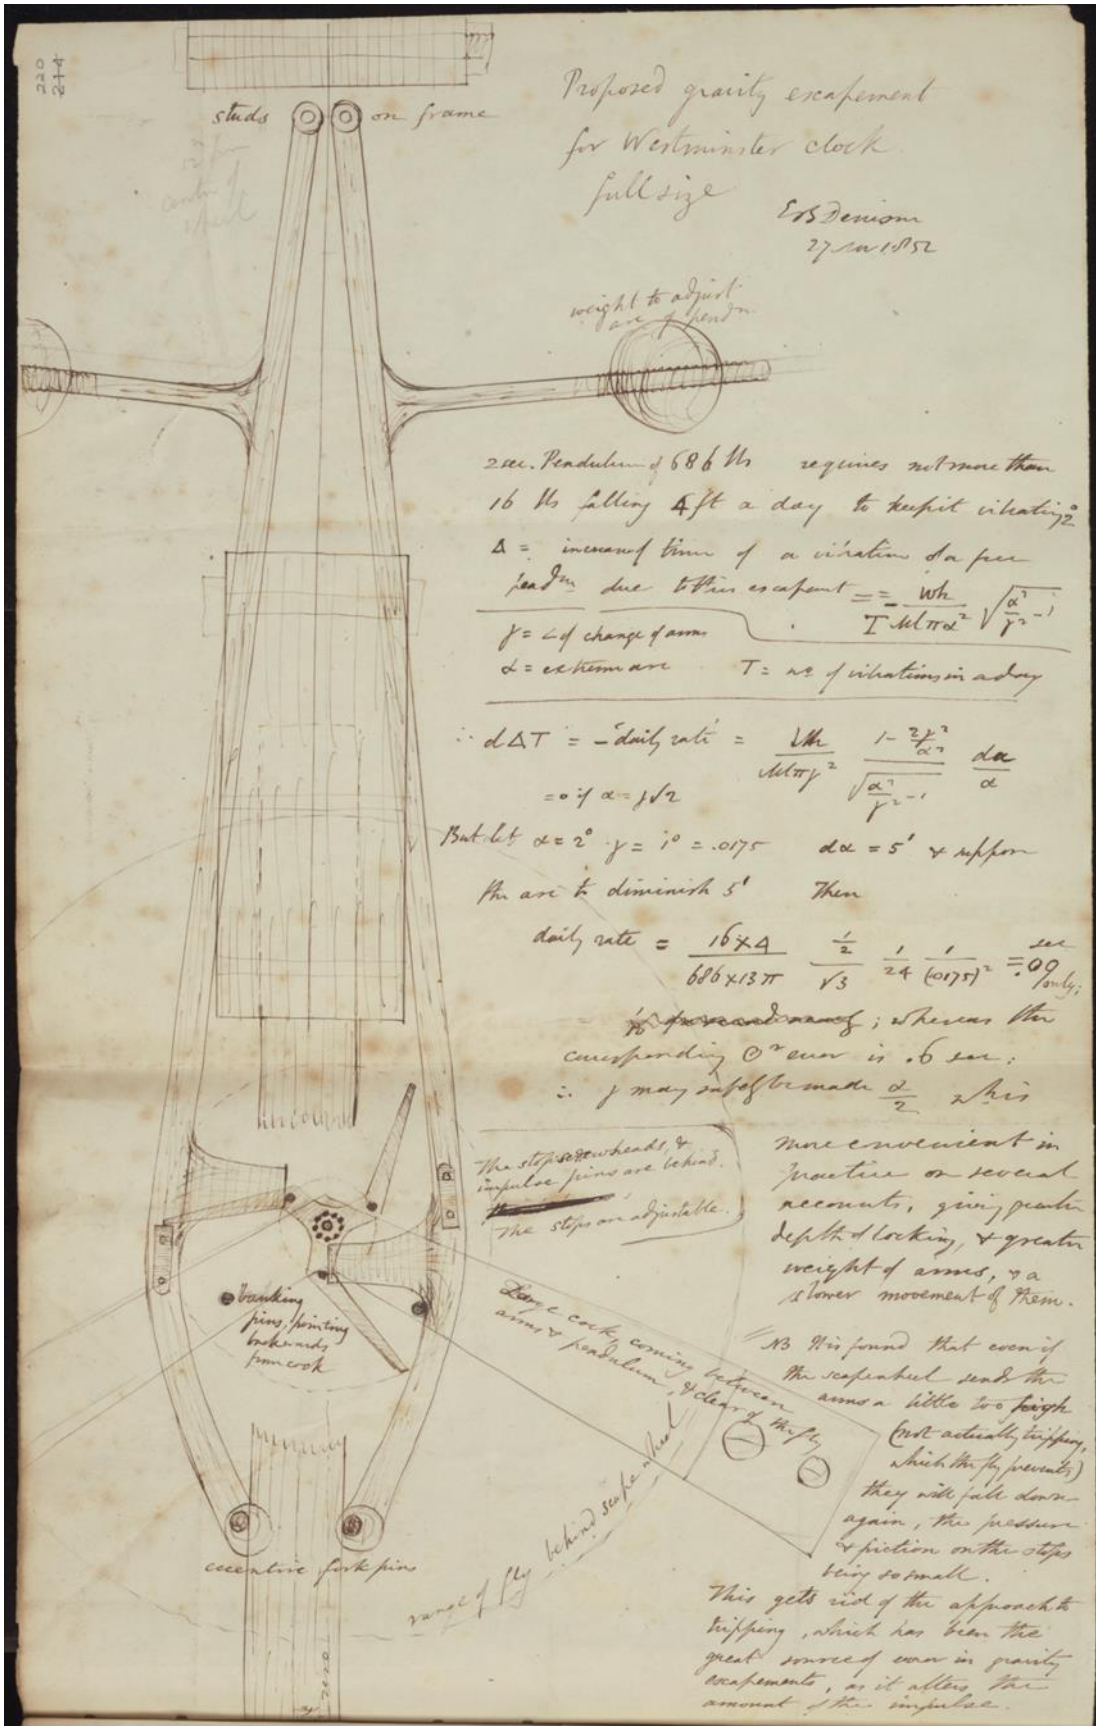 220
214
studs on frame
centre of
wheel
Proposed gravity escapement
for Westminster clock
full size
EBDenison
27 1852
weight to adjust
arc of pendm
2 sec. Pendulum of 686 lbs requires not more than
16 lbs falling 4 ft a day to keep it vibrating 2°
Δ = increase of time of a vibration of a free
pendm due to this escapemt = = - Wh / T Ml π α² √(α²/γ² - 1)
γ = ∠ of change of arms
α = extreme arc T = no of vibrations in a day
∴ dΔT = - 'daily rate' = Wh / Ml π γ² (1 - 2γ²/α²) / √(α²/γ² - 1) dα/α
= 0 if α = γ√2
But let α = 2° γ = 1° = .0175 dα = 5' & suppose
the arc to diminish 5' Then
daily rate = 16 × 4 / 686 × 13 π ½ / √3 1/24 1/(.0175)² = .09 sec
only;
; whereas the
corresponding Or error is .6 sec:
∴ γ may safely be made α/2 wh is
more convenient in
practice on several
accounts, giving greater
depth of locking, & greater
weight of arms, & a
slower movement of them.
The stop screwheads, &
impulse pins are behind.
The stops are adjustable.
banking
pins, pointing
backwards
from cock
Large cock, coming between
arms & pendulum, & clear of the fly
NB It is found that even if
the scapewheel sends the
arms a little too high
(not actually tripping,
which the fly prevents)
they will fall down
again, the pressure
& friction on the stops
being so small.
This gets rid of the approach to
tripping, which has been the
great source of error in gravity
escapements, as it alters the
amount of the impulse.
eccentric fork pins
range of fly behind scape wheel